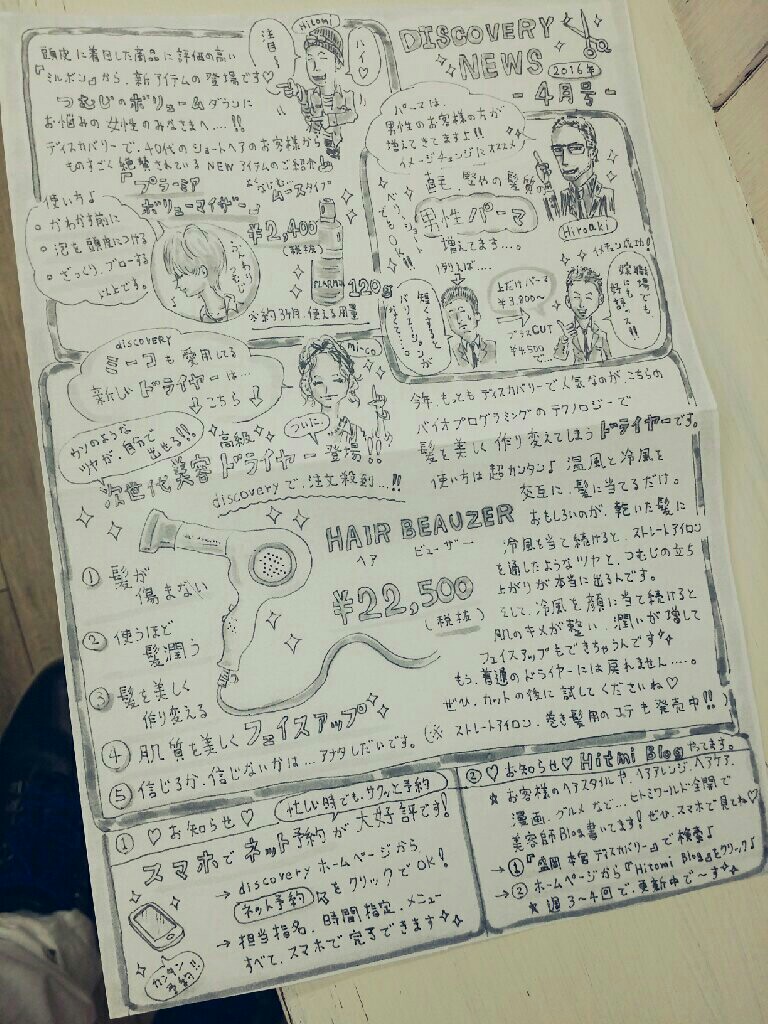 DISCOVERY
NEWS
2016年
-4月号-
Hitomi
注目!
ハイ♡
頭皮に着目した商品に評価の高い
『ミルボン』から、新アイテムの登場です♡
つむじのボリュームダウンに
お悩みの女性のみなさまへ…!!
ディスカバリーで、40代のショートヘアのお客様から
ものすごく絶賛されているNEWアイテムのご紹介♪
『プラーミア
ボリューマイザー』
ムースタイプ
¥2,400
(税抜)
120g
使い方♪
○かわかす前に
○泡を頭皮につける
○ざっくり、ブローする
以上です。
ふんわり
つむじ
♪
パーマは、
男性のお客様の方が
増えてきてますよ!!
イメージチェンジにススメ
Hiroaki
ベリーショート
でもOK!!
直毛、堅めの髪質の
男性パーマ
増えてます…。
例えば…
上だけパーマ
¥3,800〜
プラスCUT
¥4,500で…
イメチェン成功!
職場でも、
嫁にも、
好評ッス!!
discovery
ミーコも愛用してる
新しいドライヤーは…
こちら
Mi-co
ウソのような
ツヤが、自分で
出せる!!
ついに、
高級
次世代美容ドライヤー登場!!
discoveryで、注文殺到…!!
HAIR BEAUZER
ヘア ビューザー
¥22,500
(税抜)
① 髪が
傷まない
② 使うほど
髪潤う
③ 髪を美しく
作り変える
④ 肌質を美しくフェイスアップ
⑤ 信じるか、信じないかは…アナタしだいです。
今年、もっともディスカバリーで人気なのが、こちらの
バイオプログラミングのテクノロジーで
髪を美しく作り変えてしまうドライヤーです。
使い方は超カンタン♪温風と冷風を
交互に、髪に当てるだけ。
おもしろいのが、乾いた髪に
冷風を当て続けると、ストレートアイロン
を通したようなツヤと、つむじの立ち
上がりが本当に出るんです。
そして、冷風を顔に当て続けると
肌のキメが整い、潤いが増して
フェイスアップもできちゃうんです
もう、普通のドライヤーには戻れません…。
ぜひ、カットの後に試してくださいね♡
(※ ストレートアイロン、巻き髪用のコテも発売中!!)
① ♡お知らせ♡
忙しい時でも、サクッと予約
スマホでネット予約が大好評です!
→discoveryホームページから
ネット予約をクリックでOK!
→担当指名、時間指定、メニュー
すべて、スマホで完了できます
カンタン
予約!!
② ♡お知らせ♡ Hitomi Blogやってます。
☆お客様のヘアスタイルや、ヘアアレンジ、ヘアケア、
漫画、グルメなど…ヒトミワールド全開で
美容師Blog書いてます!ぜひ、スマホで見てね♡
→①『盛岡 本宮 ディスカバリー』で検索♪
→②ホームページから『Hitomi Blog』をクリック♪
☆週3〜4回で、更新中で〜す